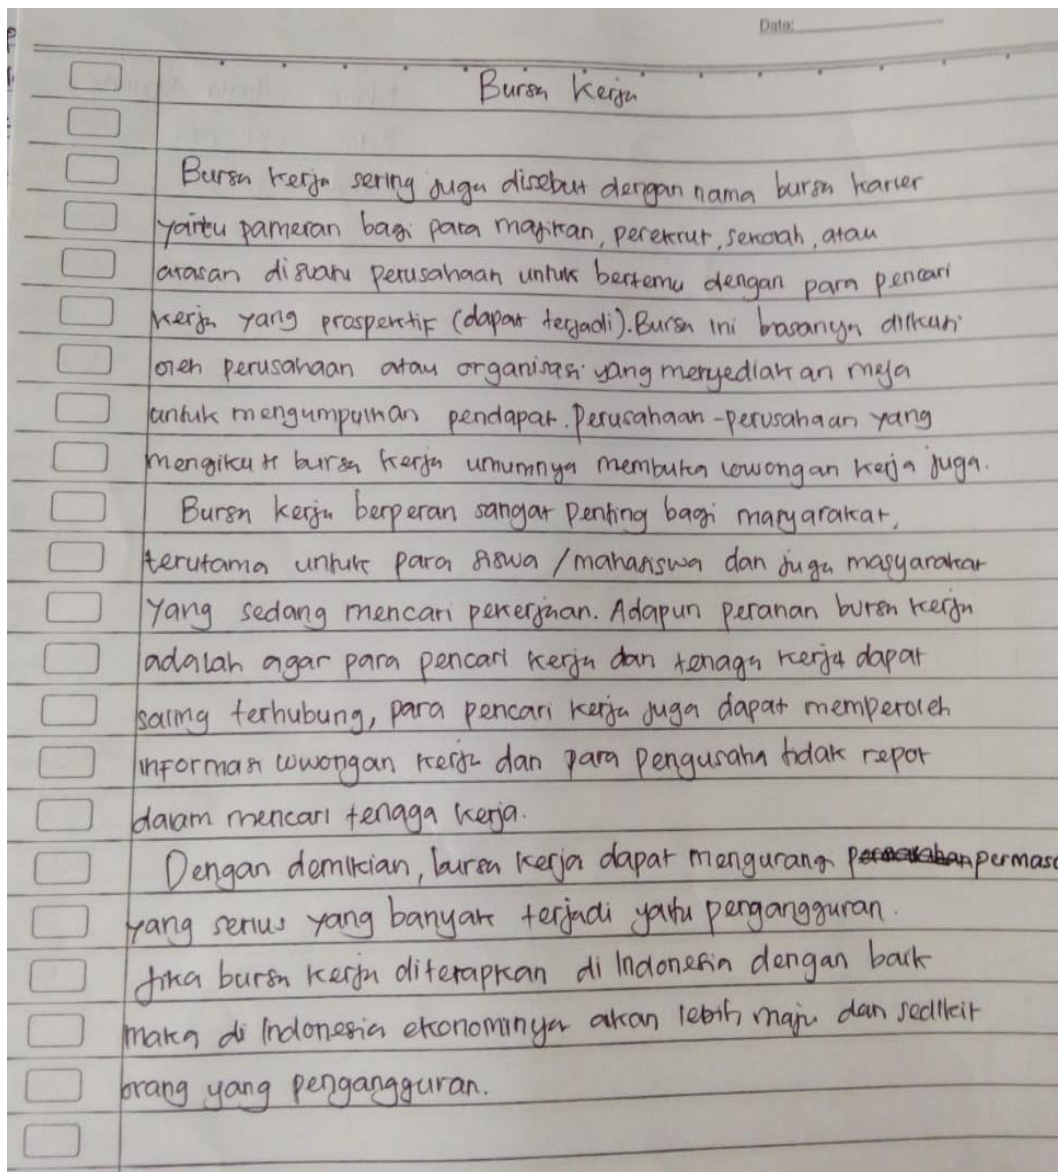 Date:
Bursa Kerja
Bursa kerja sering juga disebut dengan nama bursa karier
yaitu pameran bagi para majikan, perekrut, sekolah, atau
atasan disuatu perusahaan untuk bertemu dengan para pencari
kerja yang prospektif (dapat terjadi). Bursa ini basanya diikuti
oleh perusahaan atau organisasi yang menyediakan meja
untuk mengumpulkan pendapat. Perusahaan-perusahaan yang
mengikuti bursa kerja umumnya membuka lowongan kerja juga.
Bursa kerja berperan sangat penting bagi masyarakat,
terutama untuk para siswa / mahasiswa dan juga masyarakat
yang sedang mencari pekerjaan. Adapun peranan bursa kerja
adalah agar para pencari kerja dan tenaga kerja dapat
saling terhubung, para pencari kerja juga dapat memperoleh
informasi lowongan kerja dan para pengusaha tidak repot
dalam mencari tenaga kerja.
Dengan demikian, bursa kerja dapat mengurangi permasa
yang serius yang banyak terjadi yaitu pengangguran.
Jika bursa kerja diterapkan di Indonesia dengan baik
maka di Indonesia ekonominya akan lebih maju dan sedikit
orang yang pengangguran.